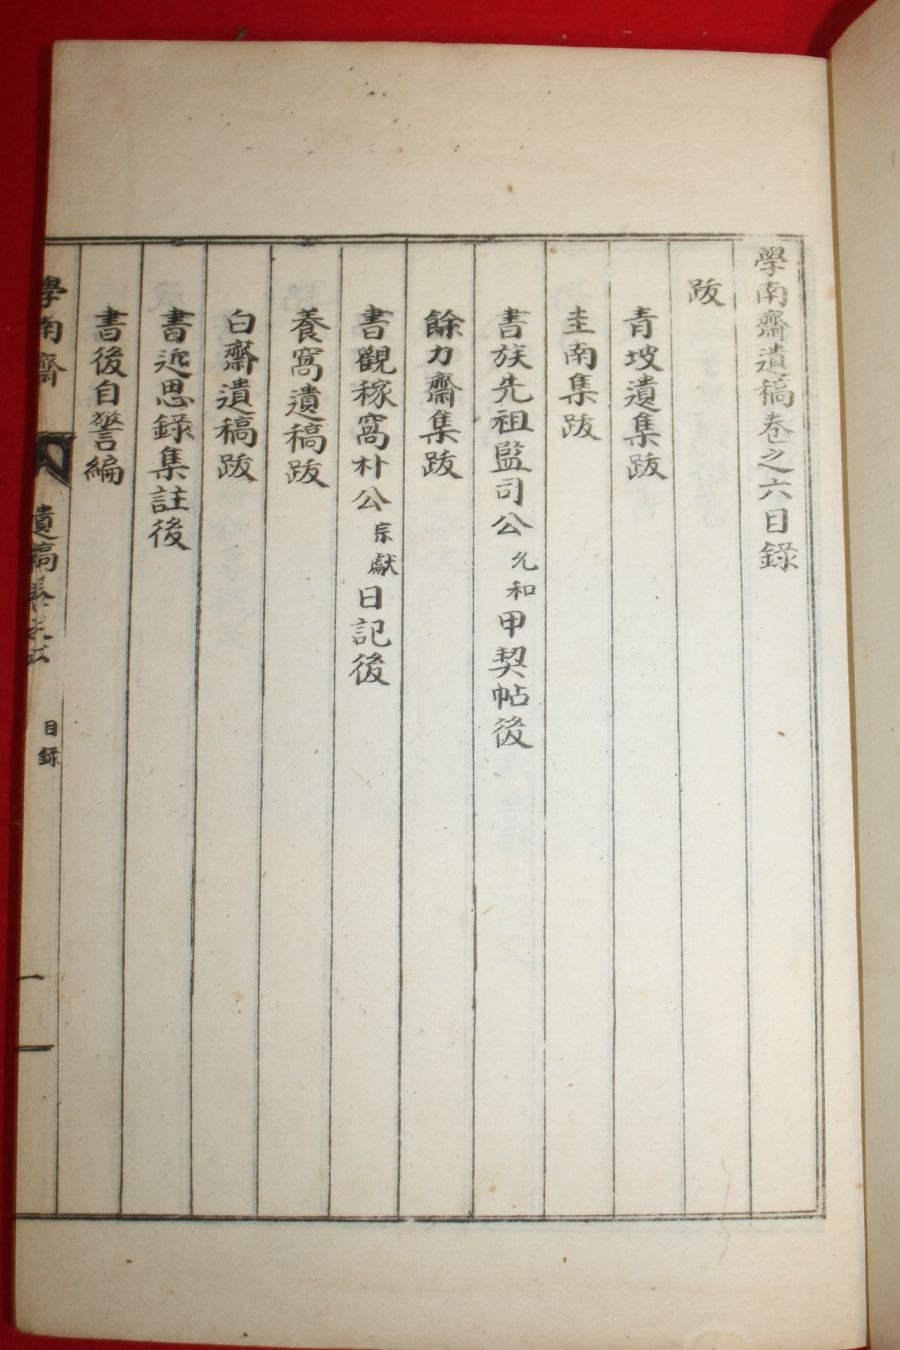 學南齋遺稿卷之六目錄
跋
青坡遺集跋
圭南集跋
書族先祖監司公允和甲契帖後
餘力齋集跋
書觀稼窩朴公宗獻日記後
養窩遺稿跋
白齋遺稿跋
書近思錄集註後
書後自警編
學南齋
遺稿卷之六
目錄
一